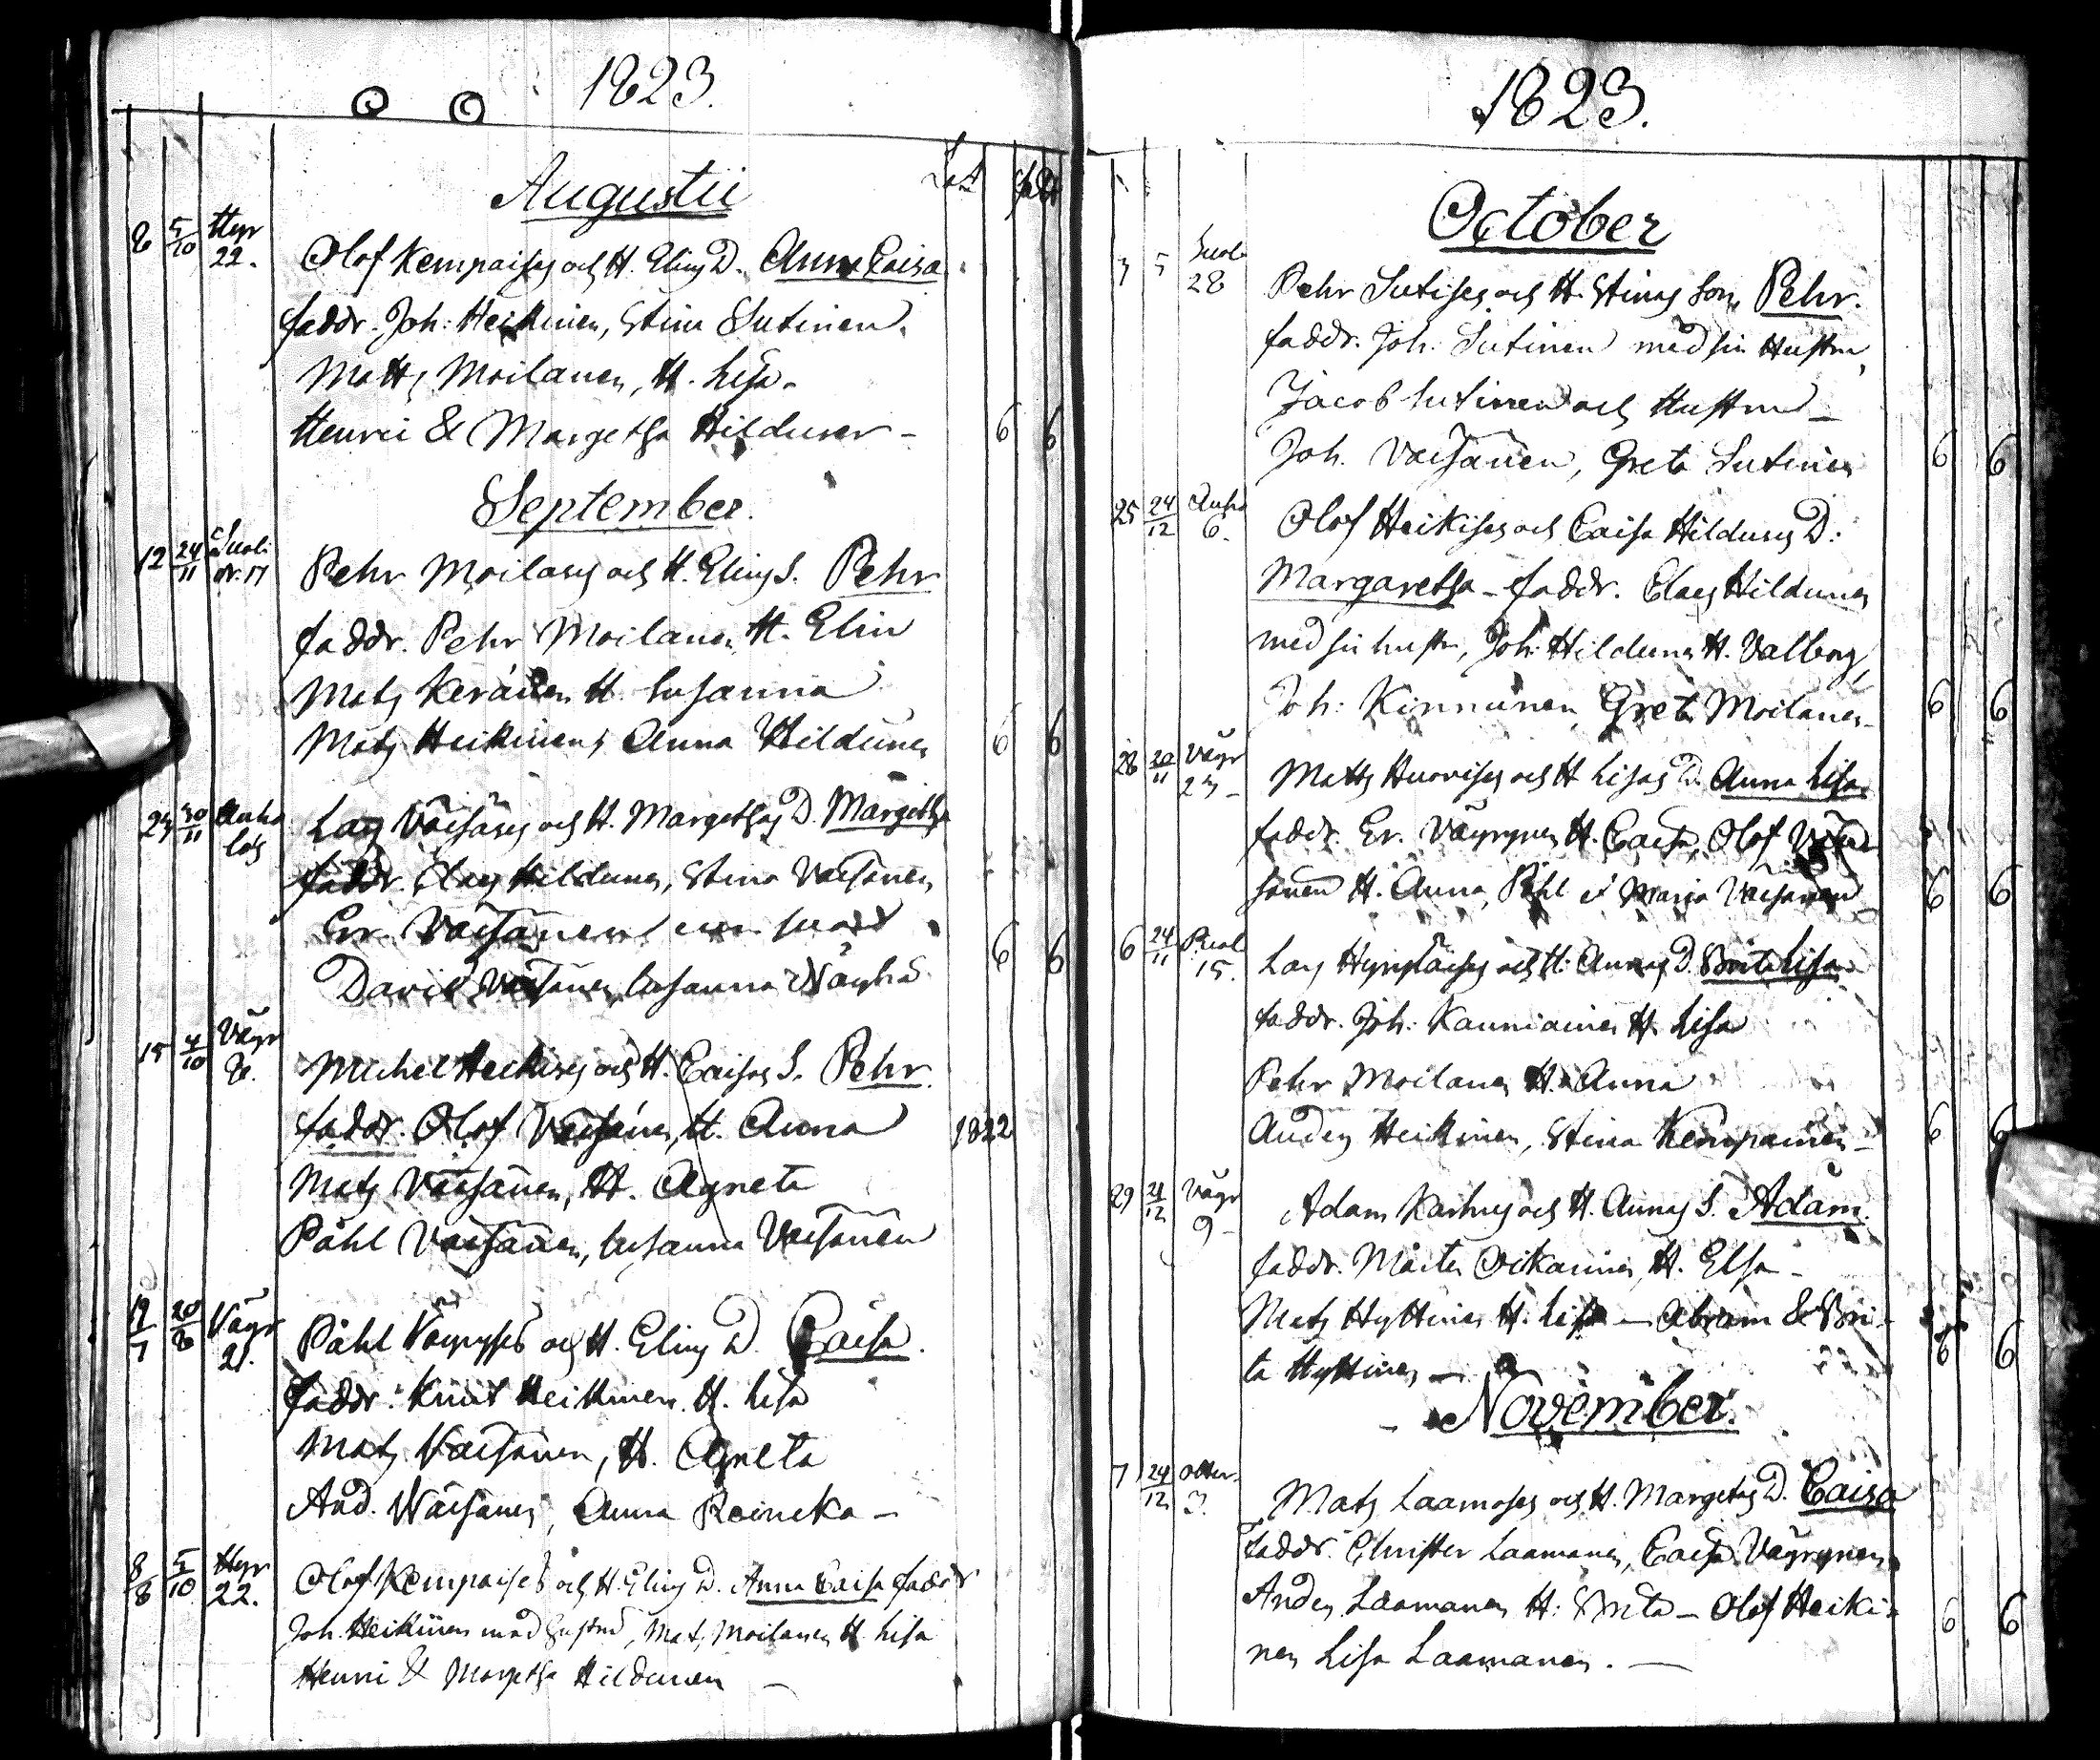 1823.
Augustii
8 5/10 Hyr 22. Olof Kempaises och H. Elins D. Anna Caisa
faddr. Joh: Heikinen, Stina Sutinen.
Matts Moilanen, H. Lisa.
Henric & Margetha Hildunen – 6 6
September.
12 24/11 Suoli Nr. 17 Pehr Moilases och H. Elins S. Pehr
faddr. Pehr Moilanen H. Elin
Mats Keränen H. Susanna
Mats Heikinen, Anna Hildunen 6 6
30/11 Lars Väisäses och H. Margethas D. Margetha
faddr. Claes Hildunen, Stina Väisänen
Er. Väisänen
David Väisänen, Susanna 6 6
15 4/10 Vägr 8. Michel Heikises och H. Caisas S. Pehr
faddr. Olof Väisänen, H. Anna 1822
Mats Väisänen, H. Agneta
Påhl Väisänen, Susanna Väisänen
19/7 20/8 Vägr 21. Påhl Väyryses och H. Elins D. Caisa.
faddr. Knut Heikkinen H. Lisa
Mats Väisänen, H. Agneta
And. Wäisänen, Anna Reineka –
8/8 5/10 Hyr 22. Olof Kempaises och H. Elins D. Anna Caisa faddr
Joh. Heikinen med hustru, Mats Moilanen H. Lisa
Henric & Margetha Hildunen –
1823.
October
5 Suol 28 Pehr Sutises och H. Stinas Son Pehr.
faddr. Joh. Sutinen med sin Hustru,
Jacob Sutinen och Hustru –
Joh. Väisänen, Greta Sutinen 6 6
25 24/12 6. Olof Heikises och Caisa Hildunens D:
Margaretha – faddr. Claes Hildunen
med sin hustru, Joh. Hildunen H. Valborg,
Joh: Kinnunen, Greta Moilanen – 6 6
28 Vägr Matts Huovises och H Lisas D. Anna Lisa.
faddr. Er. Väyrynen H. Caisa, Olof Väi
sänen H. Anna, Påhl & Maria Väisänen 6 6
6 24/11 15. Lars och H. Annas D. Brita Lisa
faddr. Joh: Kauniainen H. Lisa
Pehr Moilanen H. Anna
Anders Heikinen, Stina Kempainen – 6 6
29 21/12 Vägr 9 – Adam Karhus och H. Annas S. Adam.
faddr. Mårten Oikarinen, H. Elsa –
Mats Hyttinen H. Lisa – Abram & Bri-
ta Hyttinen – 6 6
– November.
7 24/12 3. Mats Laamases och H. Margetas D. Caisa
Faddr. Christer Laamanen, Caisa Väyrynen,
Anders Laamanen H: Brita – Olof Heiki- 6 6
nen Lisa Laamanen. –